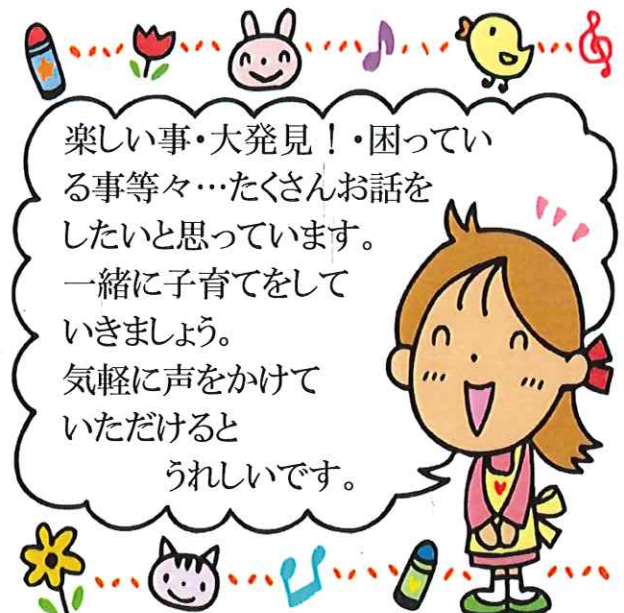 楽しい事・大発見!・困ってい
る事等々…たくさんお話を
したいと思っています。
一緒に子育てをして
いきましょう。
気軽に声をかけて
いただけると
うれしいです。